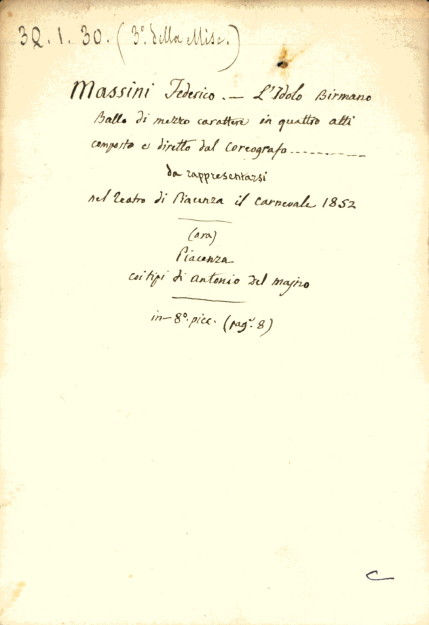 32.1.30. (3ª della Misc.)
Massini Federico. — L'Idolo Birmano
Ballo di mezzo carattere in quattro atti
composto e diretto dal Coreografo............
da rappresentarsi
nel Teatro di Piacenza il carnevale 1852
(ora)
Piacenza
coi tipi di Antonio Del Majno
in-8º. picc. (pagº. 8)
C